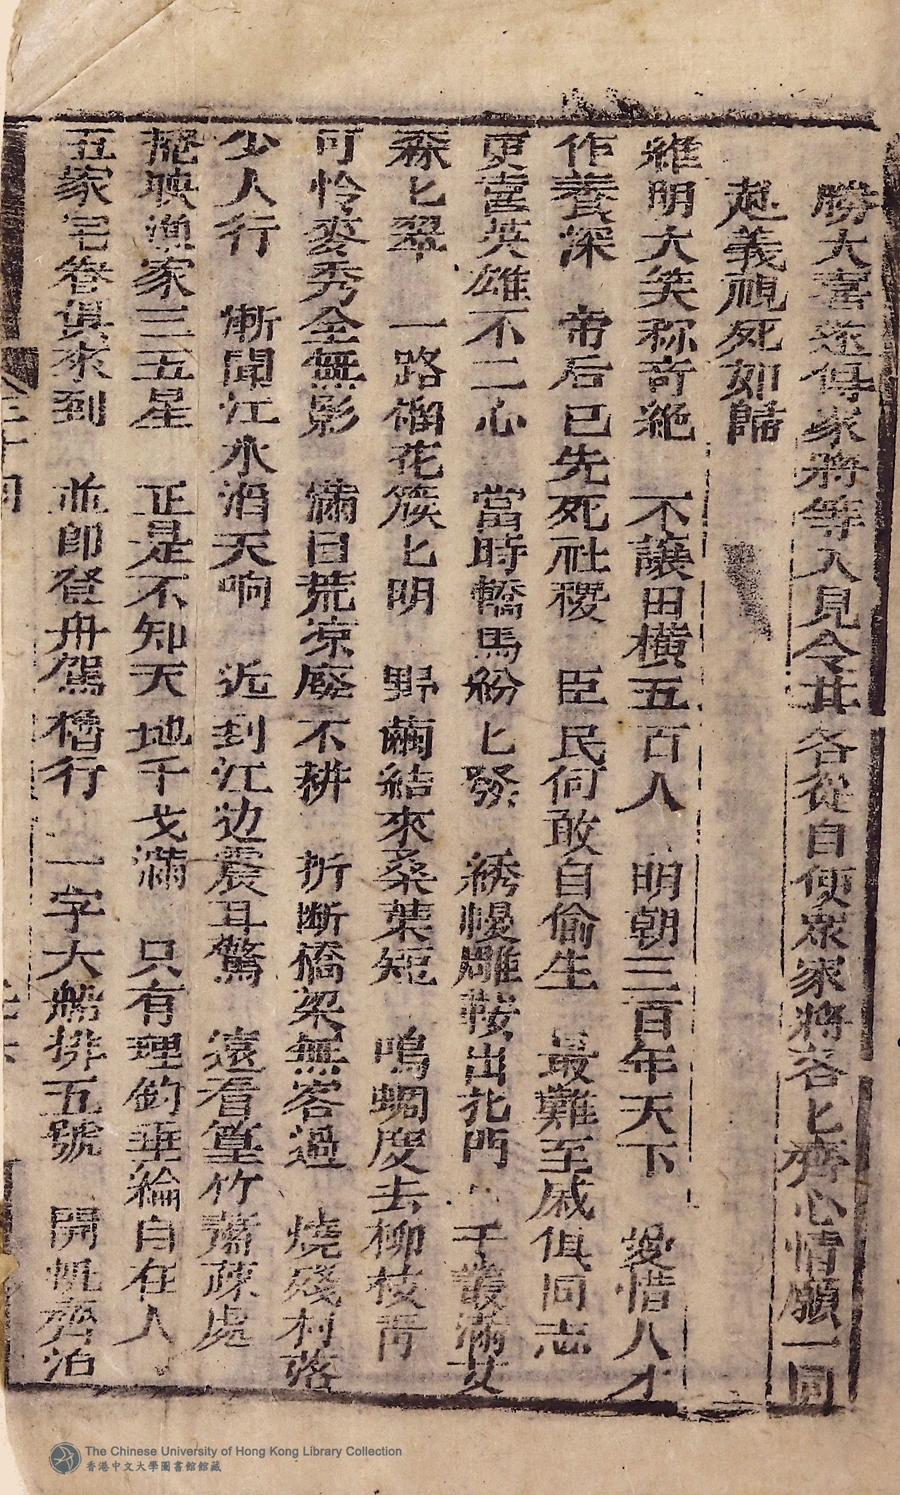 勝大喜遂傳家將等入見令其各從自便衆家將各匕齊心情願一同
赴義視死如歸
維明大笑称奇絶　不讓田橫五百人　明朝三百年天下　愛惜人才
作養深　帝后已先死社稷　臣民何敢自偷生　最難至戚俱同志
更喜英雄不二心　當時轎馬紛匕發　綉幔雕鞍出北門　千叢滿
森匕翠　一路榴花簇匕明　野繭結來桑葉短　鳴蜩度去柳枝青
可怜麥秀全無影　滿目荒凉廢不耕　折断橋梁無客過　燒殘村落
少人行　漸聞江水滔天响　近到江边震耳驚　遠看篁竹蕭疎處
掩映漁家三五星　正是不知天地干戈滿　只有理釣垂綸自在人
五家宅眷俱來到　並即登舟駕櫓行　一字大船排五號　開帆齊
The Chinese University of Hong Kong Library Collection
香港中文大學圖書館館藏